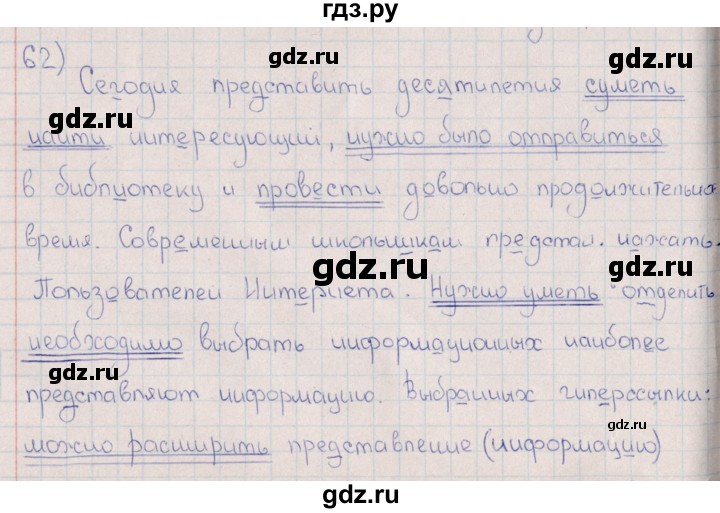 гдз.ру
gdz.ru
62)
gdz.ru
Сегодня представить десятилетия суметь
gdz.ru
найти интересующий, нужно было отправиться
gdz.ru
в библиотеку и провести довольно продолжительно
время. Современным школьникам предстал. нажать.
gdz.ru
Пользователей Интернета. Нужно уметь отделить
gdz.ru
необходимо выбрать информационных наиболее
gdz.ru
представляют информацию. Выбранных гиперссылки:
gdz.ru
можно расширить представление (информацию)
gdz.ru
gdz.ru